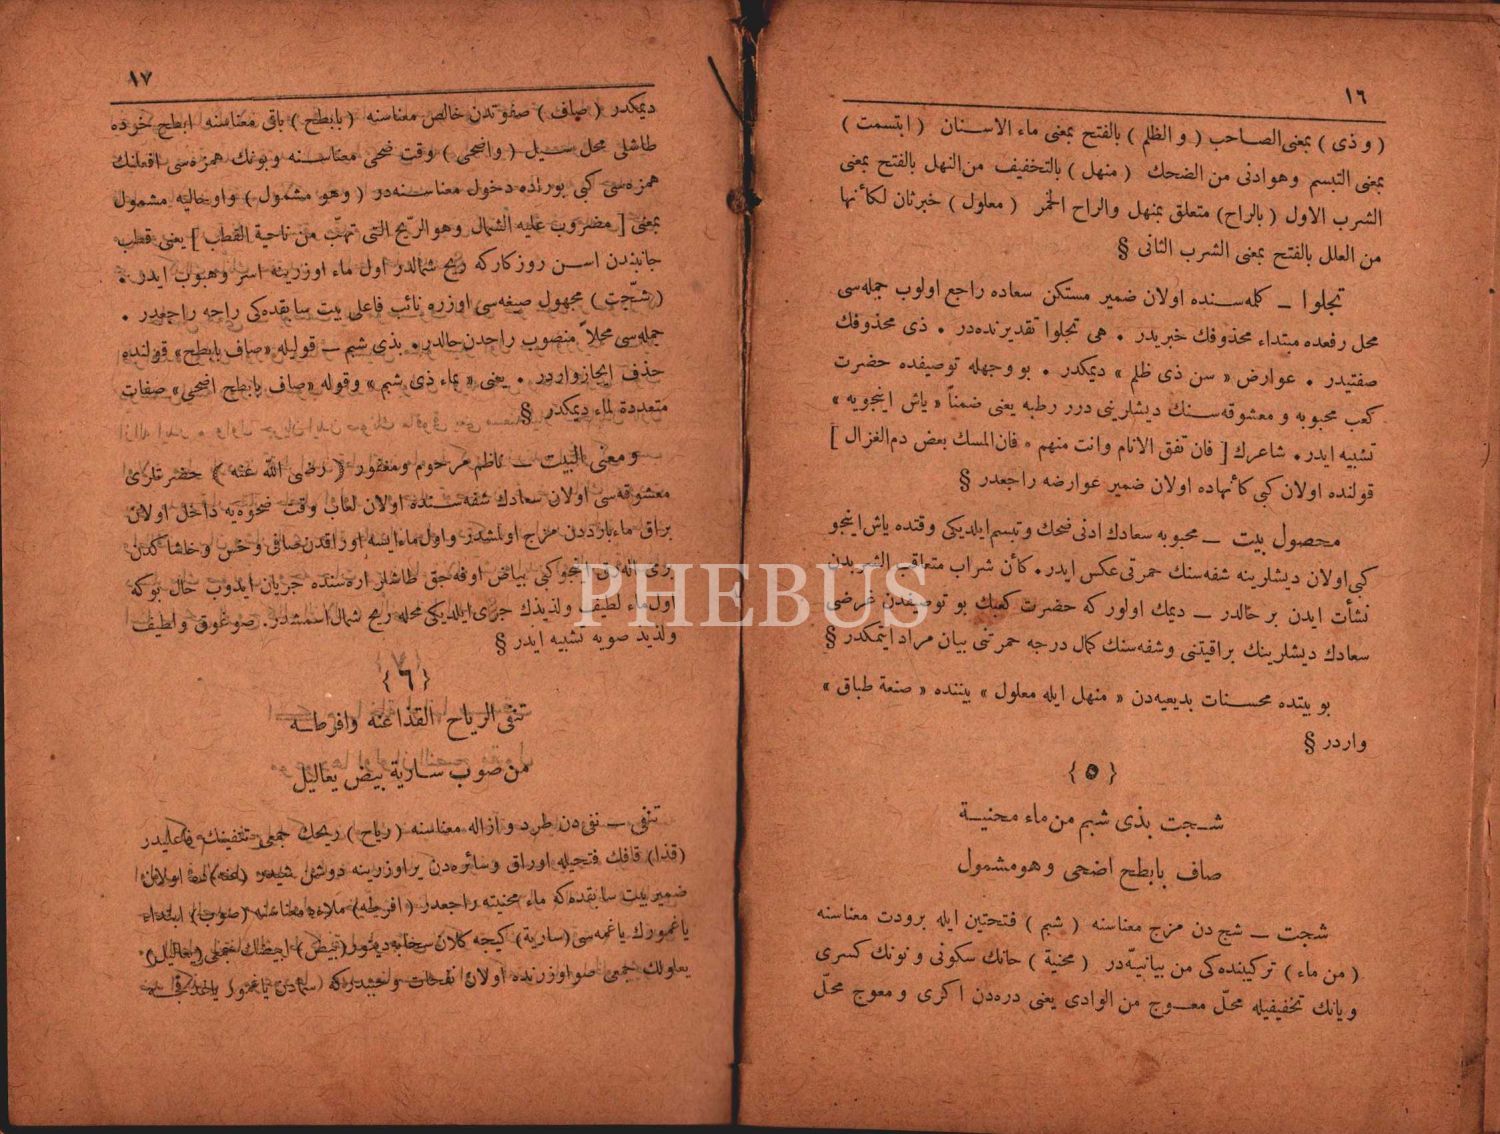 ١٦
( و ذى ) بمعنى الصاحب ( و الظلم ) بالفتح بمعنى ماء الاسنان ( ابتسمت )
بمعنى التبسم وهو ادنى من الضحك ( منهل ) بالتخفيف من النهل بالفتح بمعنى
الشرب الاول ( بالراح ) متعلق بمنهل والراح الخمر ( معلول ) خبر ثان لكأنها
من العلل بالفتح بمعنى الشرب الثانى §
تجلوا ــ كلمه‌سنده اولان ضمير مستكن سعاده راجع اولوب جمله‌سى
محل رفعده مبتداء محذوفك خبريدر . هى تجلوا تقديرنده‌در . ذى محذوفك
صفتيدر . عوارض « سن ذى ظلم » ديمكدر . بو وجهله توصيفده حضرت
كعب محبوبه و معشوقه‌سنك ديشلرينى درر رطبه يعنى ضمناً « ياش اينجويه »
تشبيه ايدر . شاعرك [ فان تفق الانام وانت منهم ٭ فان المسك بعض دم الغزال ]
قولنده اولان كبى كأنهاده اولان ضمير عوارضه راجعدر §
محصول بيت ــ محبوبه سعادك ادنى ضحك و تبسم ايلديكى وقتده ياش اينجو
كبى اولان ديشلرينه شفه‌سنك حمرتى عكس ايدر . كأن شراب متعاقب الشربدن
نشأت ايدن بر حالدر ــ ديمك اولور كه حضرت كعبك بو توصيفدن غرضى
سعادك ديشلرينك براقيتنى و شفه‌سنك كمال درجه حمرتنى بيان مراد ايتمكدر §
بو بيتده محسنات بديعيه‌دن « منهل ايله معلول » بيننده « صنعة طباق »
واردر §
{ ٥ }
شجت بذى شبم من ماء محنية
صاف بابطح اضحى وهو مشمول
شجت ــ شج دن مزج معناسنه ( شبم ) فتحتين ايله برودت معناسنه
( من ماء ) تركيبنده‌كى من بيانيه‌در ( محنية ) حانك سكونى و نونك كسرى
و يانك تخفيفيله محل معوج من الوادى يعنى دره‌دن اكرى و معوج محل
١٧
ديمكدر ( صاف ) صفوتدن خالص معناسنه ( بابطح ) باقى معناسنه ابطح خوده
طاشلى محل سيل ( واضحى ) وقت ضحى معناسنه و بونك همزه‌سى افعلنك
همزه‌سى كبى بوراده دخول معناسنه‌در ( وهو مشمول ) واوحاليه مشمول
بمعنى [ مضروب عليه الشمال وهو الريح التى تهب من ناحية القطب ] يعنى قطب
جانبندن اسن روزكاركه ريح شمالدر اول ماء اوزرينه اسر وهبوب ايدر .
( شجّت ) مجهول صيغه‌سى اوزره نائب فاعلى بيت سابقده‌كى راحه راجعدر .
جمله‌سى محلاً منصوب راحدن حالدر . بذى شبم ــ قوليله « صاف بابطح » قولنده
حذف ايجاز واردر . يعنى « بماء ذى شبم » وقوله « صاف بابطح اضحى » صفات
متعددة لماء ديمكدر §
ومعنى البيت ــ ناظم مرحوم ومغفور ( رضى الله عنه ) حضرتلرى
معشوقه‌سى اولان سعادك شفه‌سنده اولان لعاب وقت ضحوه‌يه داخل اولان
براق ماء باردن مزج اولمشدر و اول ماء ايسه اوراقدن صافى وخس و خاشاكدن
برى انه‌رق انجو كبى بياض اوفه‌جق طاشلر اره‌سنده جريان ايدوب حال بوكه
اول ماء لطيف ولذيذك جرى ايلديكى محله ريح شمال اسمشدر . صوغوق و لطيف
ولذيذ صويه تشبيه ايدر §
{ ٦ }
تنفى الرياح القذا عنه وافرطه
من صوب سارية بيض يعاليل
تنفى ــ نفى دن طرد و ازاله معناسنه ( رياح ) ريحك جمعى تنفينك فاعليدر
( قذا ) قافك فتحيله اوراق و سائره‌دن ير اوزرينه دوشن شيدر ( عنه ) ده اولان
ضمير بيت سابقده‌كه ماء محنيته راجعدر ( افرطه ) ملاه معناسنه ( صوب ) ابتداء
ياغمورك ياغمه‌سى ( سارية ) كيجه كلان سحابه ديلور ( بيض ) ابيضك جمعى ( يعاليل )
يعلولك جمعى صو اوزرنده اولان نفحات و